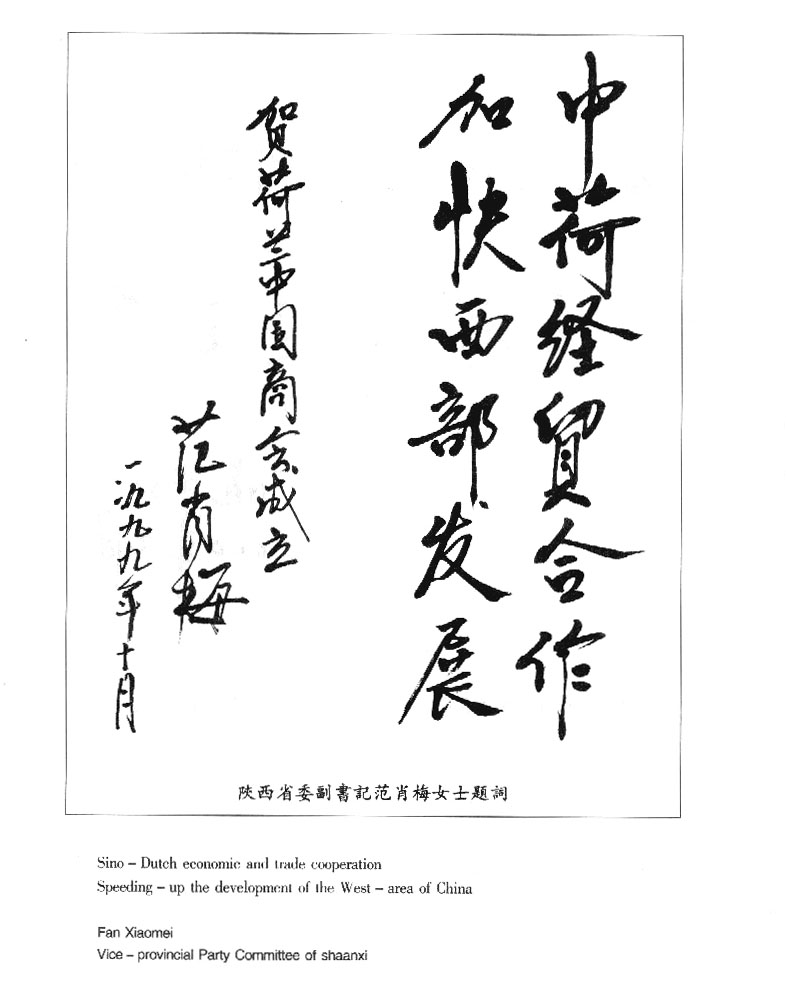 中荷经贸合作
加快西部发展
贺荷兰中国商会成立
范肖梅
一九九九年十月
陝西省委副書記范肖梅女士題詞
Sino – Dutch economic and trade cooperation
Speeding – up the development of the West – area of China
Fan Xiaomei
Vice – provincial Party Committee of shaanxi